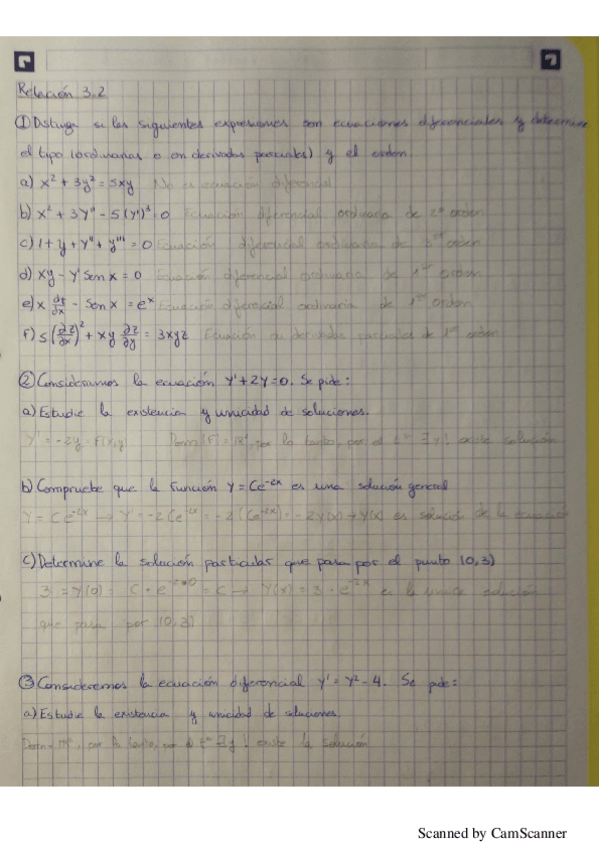 Relación 3.2
① Distinga si las siguientes expresiones son ecuaciones diferenciales y determine
el tipo (ordinarias o en derivadas parciales) y el orden.
a) x² + 3y² = 5xy No es ecuación diferencial
b) x² + 3y'' - 5(y')³ = 0 Ecuación diferencial ordinaria de 2º orden
c) 1 + y + y'' + y''' = 0 Ecuación diferencial ordinaria de 3er orden
d) xy - y' sen x = 0 Ecuación diferencial ordinaria de 1er orden
e) x - sen x = eˣ Ecuación diferencial ordinaria de 1er orden
f) 5(∂z/∂x)² + xy ∂z/∂y = 3xyz Ecuación en derivadas parciales de 1er orden
② Consideramos la ecuación y' + 2y = 0. Se pide:
a) Estudie la existencia y unicidad de soluciones.
y' = -2y = F(x,y) Dom F = ℝ², por lo tanto, por el tª ∃y! existe solución
b) Compruebe que la función y = Ce⁻²ˣ es una solución general
y = Ce⁻²ˣ → y' = -2Ce⁻²ˣ = -2(Ce⁻²ˣ) = -2y(x) → y(x) es solución de la ecuación
c) Determine la solución particular que pasa por el punto (0,3)
3 = y(0) = C · e⁻²·⁰ = C → y(x) = 3 · e⁻²ˣ es la única solución
que pasa por (0,3)
③ Consideremos la ecuación diferencial y' = y² - 4. Se pide:
a) Estudie la existencia y unicidad de soluciones.
Dom = ℝ², por lo tanto, por el tª ∃y! existe la solución
Scanned by CamScanner